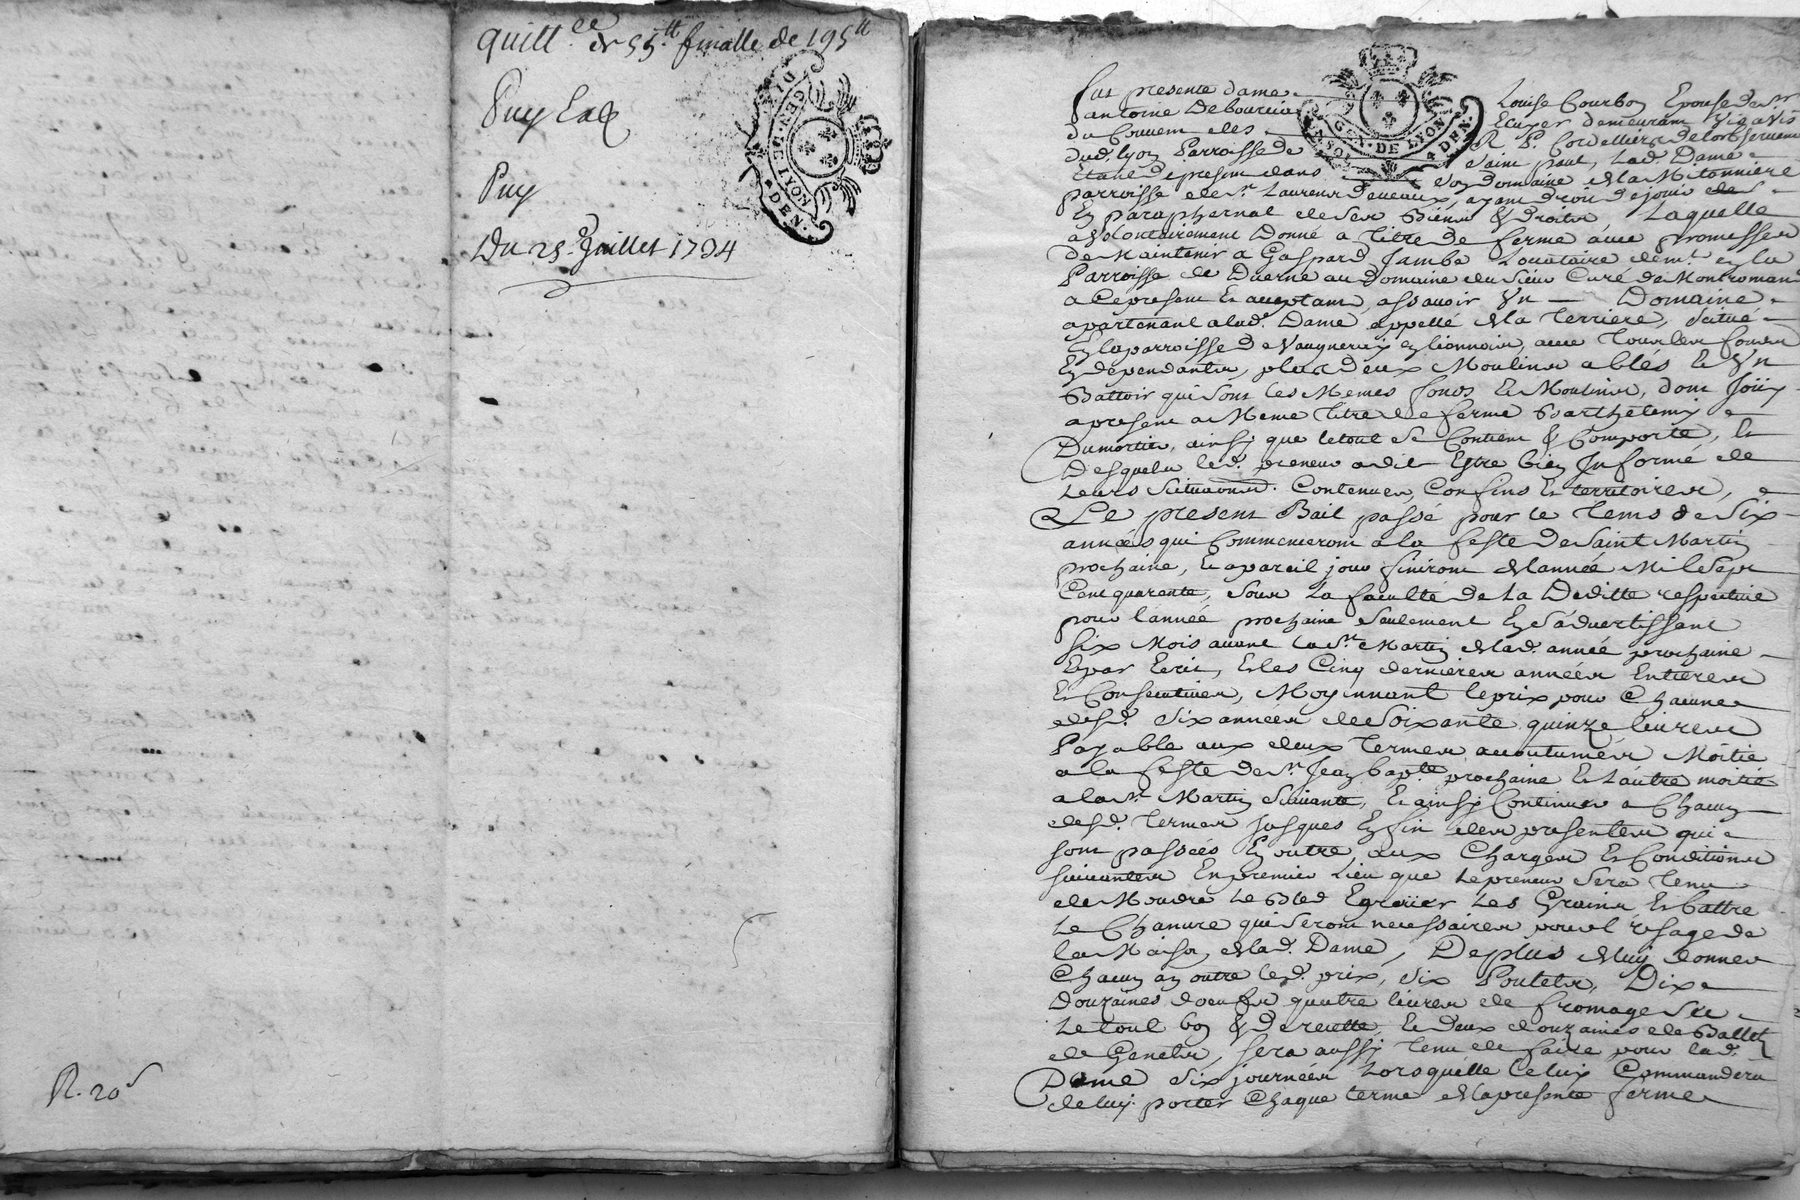 quitt.ce de 55.tt finalle de 195tt
Puy
Puy
Du 25.e Juillet 1734
GEN · DE LYON
4 DEN.
R. 20s
GEN · DE LYON
4 DEN.
Fut presente dame Louise Courbon Epouse de Sr
antoine De boureia Ecuyer demeurant vis a vis
du Couvent des R. P. Cordelliers de lobservence
dud. lyon Parroisse de Saint paul, Lad. Dame
Etant de present dans son domaine de la Mitonniere
parroisse de St. Laurens deveaux, ayant droit de jouir de
En paraphernal de ses biens & droits Laquelle
a volontairement Donné a titre de ferme avec promesse
De Maintenir a Gaspard Jamba Locataire demt. en la
Parroisse de Duerne au domaine du sieur Curé de Montroman
a Ce present Et acceptant, assavoir Un Domaine
apartenant a lad.e Dame, appellé de la Terriere, situé
En la parroisse de Vaugneray en lionnois, avec Tous les fonds
En dependants, plus deux Moulins a bléd Et Un
Battoir qui sont les Memes fonds Et Moulins, dont Joüy
a present a Meme titre de ferme Barthelemy
Dumortier, ainsy que letout se Contient & Comporte, Et
Desquels led. preneur a dit Estre bien Informé de
Leurs situations. Contenues, Confins Et territoires,
Le present Bail passé pour le Tems de six
années qui Commenceront a la feste de Saint Martin
prochaine, Et a pareil jour finiront de lannée Mil Sept
Cent quarante, sous La faculté de La Deditte respective
pour l'année prochaine seulement En S'advertissant
six Mois avant la St. Martin de lad. année prochaine
Et par Ecrit, Et les Cinq dernieres années Entieres
Et Consecutives, Moyennant le prix pour Chacune
desd. six années de soixante quinze livres
Payable aux deux Termes accoutumés Moitié
a la feste de St. Jean bapte. prochaine Et L'autre moitié
a la St. Martin suivante, Et ainsy Continuer a Chacun
desd. Termes Jusques En fin des presentes qui
sont passées En outre, aux Charges Et Conditions
suivantes En premier Lieu que Le preneur sera Tenu
de Moudre Le Bled Egruer Les Grains Et battre
Le Chanvre qui seront necessaires pour l'usage de
la Maison de lad. Dame, De plus de luy donner
Chacun an outre led. prix, six Poulets, Dix
Douzaines d'oeufs quatre livres de fromage sec
Le tout bon & de recette, Et deux douzaines de Ballets
de Genets, sera aussy tenu de faire pour lad.
Dame six journées Lorsquelle Celuy Commandera
de luy porter Chaque terme de la presente ferme